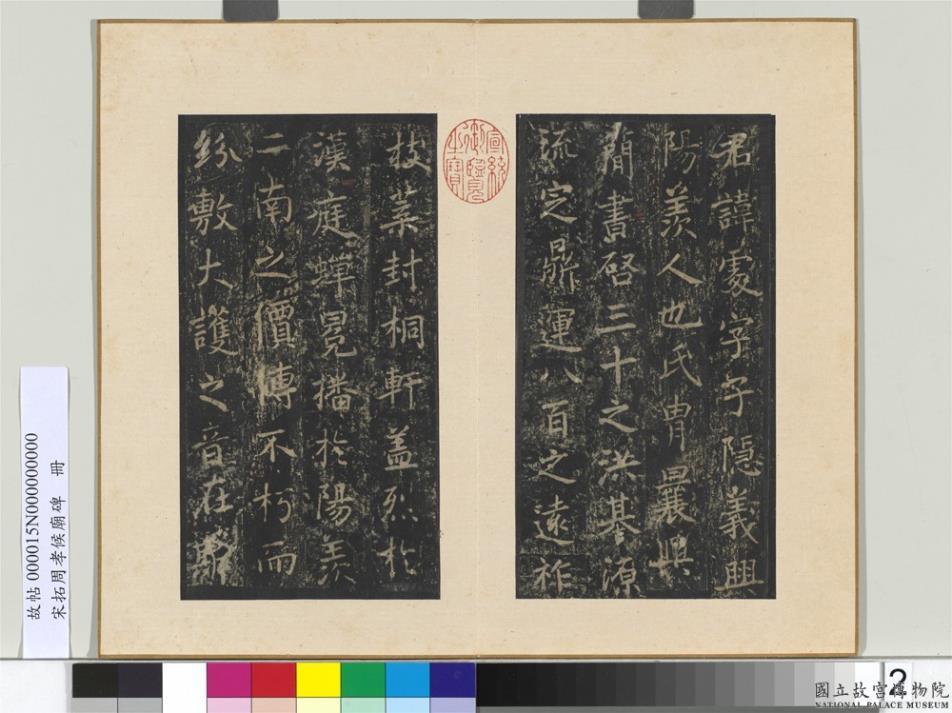 君諱處字子隱義興
陽羨人也氏冑曩興
簡書啓三十之洪基源
流定鼎運八百之遠祚
宣統御覽之寶
枝葉封桐軒蓋烈於
漢庭蟬冕播於陽羨
二南之價傳不朽而
紛敷大護之音在
故帖 000015N000000000
宋拓周孝候廟碑 冊
2
國立故宮博物院
NATIONAL PALACE MUSEUM